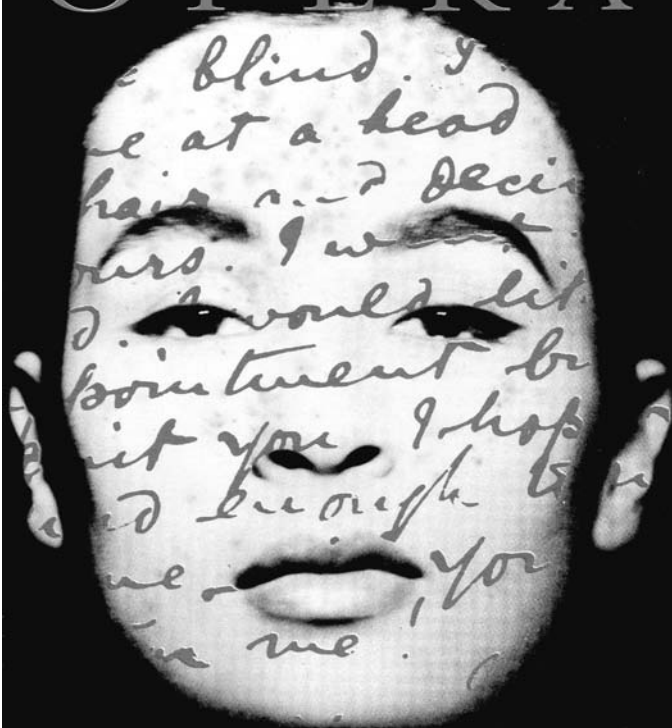 OPERA
blind. I
at a head
hair and deci
ours. I want
d. I would lit
pointment br
it you. I hop
nd enough to
me you
in me!